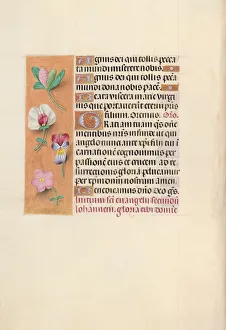 Agnus dei qui tollis pecca
ta mundi miserere nobis
Agnus dei qui tollis pecca
ta mundi dona nobis pacem
Beata viscera marie virgi
nis que portaverunt eterni pa
filium. Oremus. Oro.
Gratiam tuam qs dne
mentibus nris infunde ut qui
angelo nunciante xpi filii tui in
carnatione cognovimus per
passione eius et crucem ad re
surrectionis gloria perducamur
per xpm dnm nostrum amen
Benedicamus dno deo gras
Initium sci evangelii secundu
Johannem. gloria tibi domie